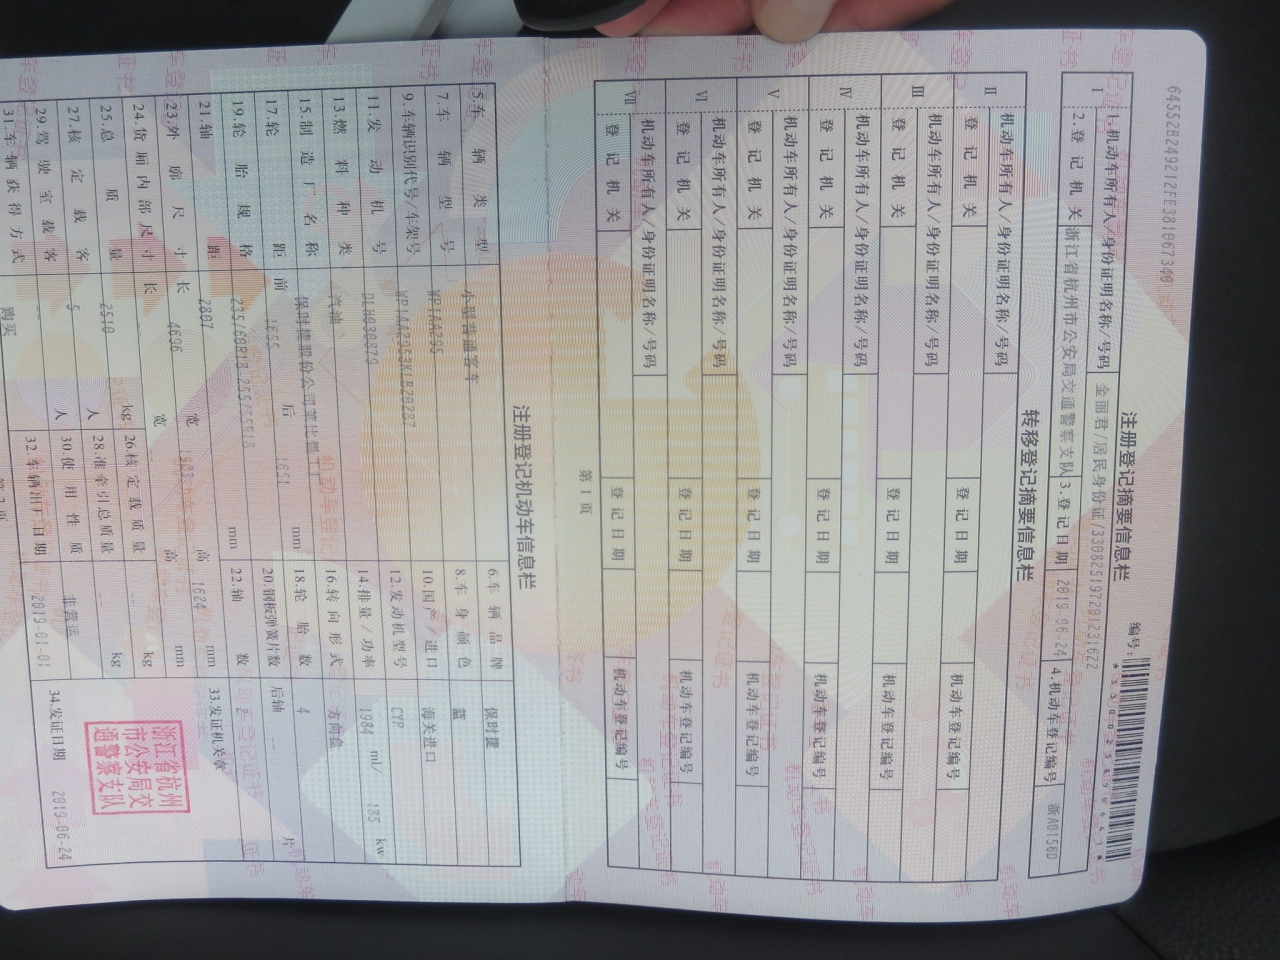 645528249212FE381067340
注册登记摘要信息栏
编号:
Ⅰ
1.机动车所有人/身份证明名称/号码
金丽君/居民身份证/330825197201231622
2.登记机关
浙江省杭州市公安局交通警察支队
3.登记日期
2019-06-24
4.机动车登记编号
浙A0156D
转移登记摘要信息栏
Ⅱ
机动车所有人/身份证明名称/号码
登记机关
登记日期
机动车登记编号
Ⅲ
机动车所有人/身份证明名称/号码
登记机关
登记日期
机动车登记编号
Ⅳ
机动车所有人/身份证明名称/号码
登记机关
登记日期
机动车登记编号
Ⅴ
机动车所有人/身份证明名称/号码
登记机关
登记日期
机动车登记编号
Ⅵ
机动车所有人/身份证明名称/号码
登记机关
登记日期
机动车登记编号
Ⅶ
机动车所有人/身份证明名称/号码
登记机关
登记日期
机动车登记编号
第1页
注册登记机动车信息栏
5.车辆类型 小型普通客车 6.车辆品牌 保时捷
7.车辆型号 WP1AA295 8.车身颜色 蓝
9.车辆识别代号/车架号 10.国产/进口 海关进口
11.发动机号 DLH030879 12.发动机型号 CYP
13.燃料种类 汽油 14.排量/功率 1984 ml/ 185 kw
15.制造厂名称 16.转向形式 方向盘
17.轮距 前 1655 后 1651 mm 18.轮胎数 4
19.轮胎规格 235/60R18 255/55R18 20.钢板弹簧片数 后轴 -- 片
21.轴距 2807 mm 22.轴数 2
23.外廓尺寸 长 4696 宽 1923 高 1624 mm 33.发证机关章
24.货厢内部尺寸 长 -- 宽 -- 高 -- mm
25.总质量 2510 kg 26.核定载质量 -- kg
27.核定载客 5 人 28.准牵引总质量 -- kg
29.驾驶室载客 -- 人 30.使用性质 非营运
31.车辆获得方式 购买 32.车辆出厂日期 2019-01-01 34.发证日期 2019-06-24
浙江省杭州
市公安局交
通警察支队